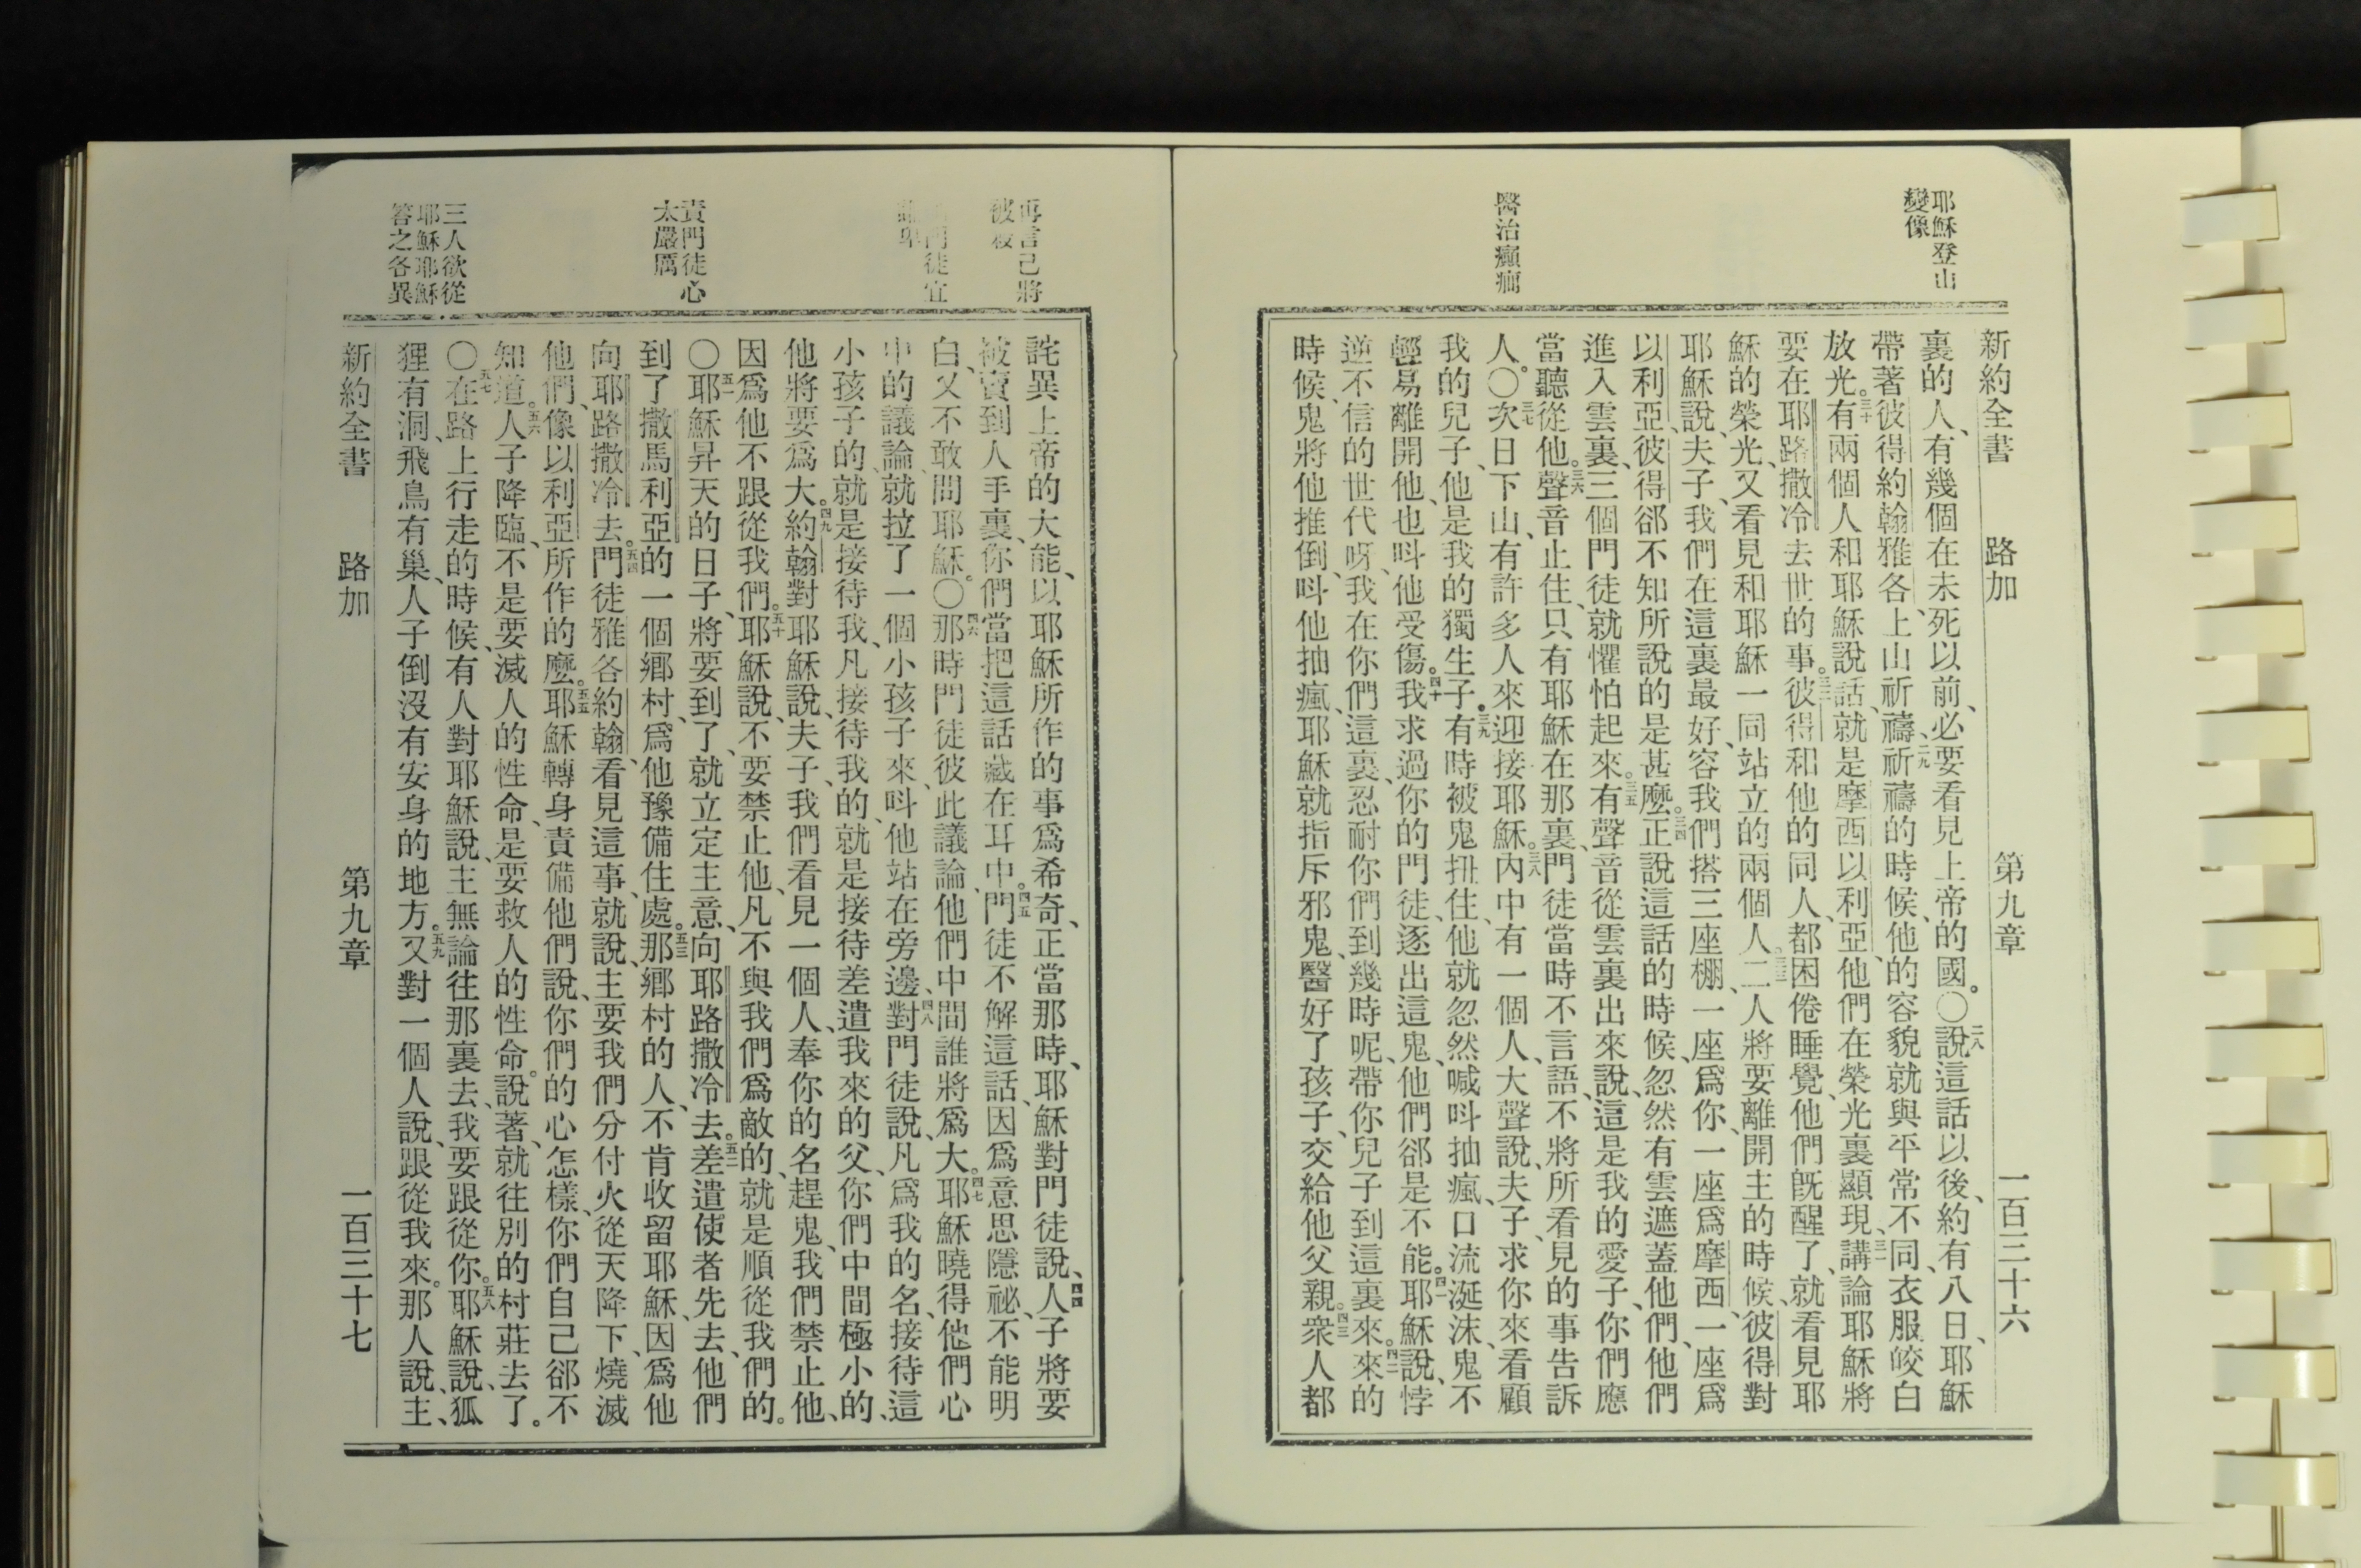 新約全書 路加 第九章 一百三十六
耶穌登山
變像
醫治癲癇
裏的人、有幾個在未死以前、必要看見上帝的國。〇二八說這話以後、約有八日、耶穌
帶著彼得約翰雅各、上山祈禱、二九祈禱的時候、他的容貌就與平常不同、衣服皎白
放光。三十有兩個人和耶穌說話、就是摩西以利亞、他們在榮光裏顯現、三一講論耶穌將
要在耶路撒冷去世的事。三二彼得和他的同人、都困倦睡覺、他們旣醒了、就看見耶
穌的榮光、又看見和耶穌一同站立的兩個人。三三二人將要離開主的時候、彼得對
耶穌說、夫子、我們在這裏最好、容我們搭三座棚、一座爲你、一座爲摩西、一座爲
以利亞、彼得郤不知所說的是甚麼。三四正說這話的時候、忽然有雲遮蓋他們、他們
進入雲裏、三個門徒就懼怕起來。三五有聲音從雲裏出來說、這是我的愛子、你們應
當聽從他。三六聲音止住、只有耶穌在那裏、門徒當時不言語、不將所看見的事告訴
人。〇三七次日下山、有許多人來迎接耶穌。三八內中有一個人、大聲說、夫子、求你來看顧
我的兒子、他是我的獨生子。三九有時被鬼扭住、他就忽然喊呌抽瘋、口流涎沫、鬼不
輕易離開他、也呌他受傷。四十我求過你的門徒、逐出這鬼、他們郤是不能。四一耶穌說、悖
逆不信的世代呀、我在你們這裏、忍耐你們到幾時呢、帶你兒子到這裏來。四二來的
時候、鬼將他推倒、呌他抽瘋、耶穌就指斥邪鬼、醫好了孩子、交給他父親。四三衆人都
再言己將
被殺
門徒宜
責門徒心
太嚴厲
三人欲從
耶穌耶穌
答之各異
詫異上帝的大能、以耶穌所作的事爲希奇、正當那時、耶穌對門徒說、四四人子將要
被賣到人手裏、你們當把這話藏在耳中。四五門徒不解這話、因爲意思隱祕、不能明
白、又不敢問耶穌。〇四六那時門徒彼此議論、他們中間誰將爲大。四七耶穌曉得他們心
中的議論、就拉了一個小孩子來、呌他站在旁邊、四八對門徒說、凡爲我的名、接待這
小孩子的、就是接待我、凡接待我的、就是接待差遣我來的父、你們中間極小的、
他將要爲大。四九約翰對耶穌說、夫子、我們看見一個人、奉你的名趕鬼、我們禁止他、
因爲他不跟從我們。五十耶穌說、不要禁止他、凡不與我們爲敵的、就是順從我們的。
〇五一耶穌昇天的日子、將要到了、就立定主意、向耶路撒冷去。五二差遣使者先去、他們
到了撒馬利亞的一個鄉村、爲他豫備住處。五三那鄉村的人、不肯收留耶穌、因爲他
向耶路撒冷去。五四門徒雅各約翰、看見這事、就說、主要我們分付火從天降下、燒滅
他們、像以利亞所作的麼。五五耶穌轉身責備他們說、你們的心怎樣、你們自己郤不
知道。五六人子降臨、不是要滅人的性命、是要救人的性命。說著、就往別的村莊去了。
〇五七在路上行走的時候、有人對耶穌說、主無論往那裏去、我要跟從你。五八耶穌說、狐
狸有洞、飛鳥有巢、人子倒沒有安身的地方。五九又對一個人說、跟從我來。那人說、主、
新約全書 路加 第九章 一百三十七